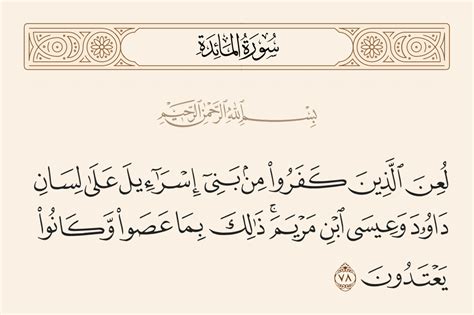 سُورَةُ المَائِدَة
بِسْمِ ٱللَّهِ ٱلرَّحْمَٰنِ ٱلرَّحِيمِ
لُعِنَ ٱلَّذِينَ كَفَرُوا۟ مِنۢ بَنِىٓ إِسْرَٰٓءِيلَ عَلَىٰ لِسَانِ
دَاوُۥدَ وَعِيسَى ٱبْنِ مَرْيَمَ ۚ ذَٰلِكَ بِمَا عَصَوا۟ وَّكَانُوا۟
يَعْتَدُونَ ٧٨